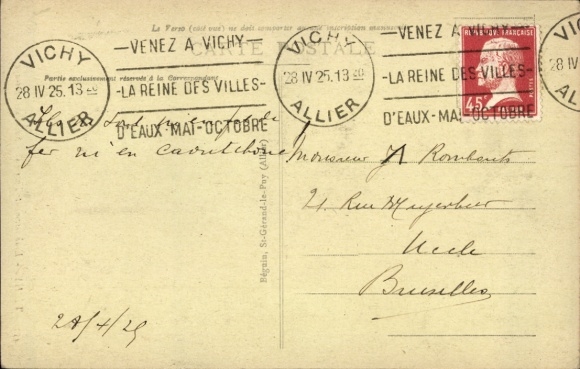 Le Verso (seul vu) ne doit comporter aucune inscription manuscrite
CARTE POSTALE
Partie exclusivement réservée à la Correspondance
VICHY
28 IV 25. 13
ALLIER
VENEZ A VICHY
LA REINE DES VILLES
D'EAUX-MAI-OCTOBRE
VICHY
28 IV 25. 13
ALLIER
VENEZ A VICHY
LA REINE DES VILLES
D'EAUX-MAI-OCTOBRE
RÉPUBLIQUE FRANÇAISE
45c
POSTES
ALLIER
fer ni en caoutchouc
Monsieur Rombauts
21. Rue Meyerbeer
Uccle
Bruxelles
28/4/25
Béguin, St-Gérand-le-Puy (Allier)